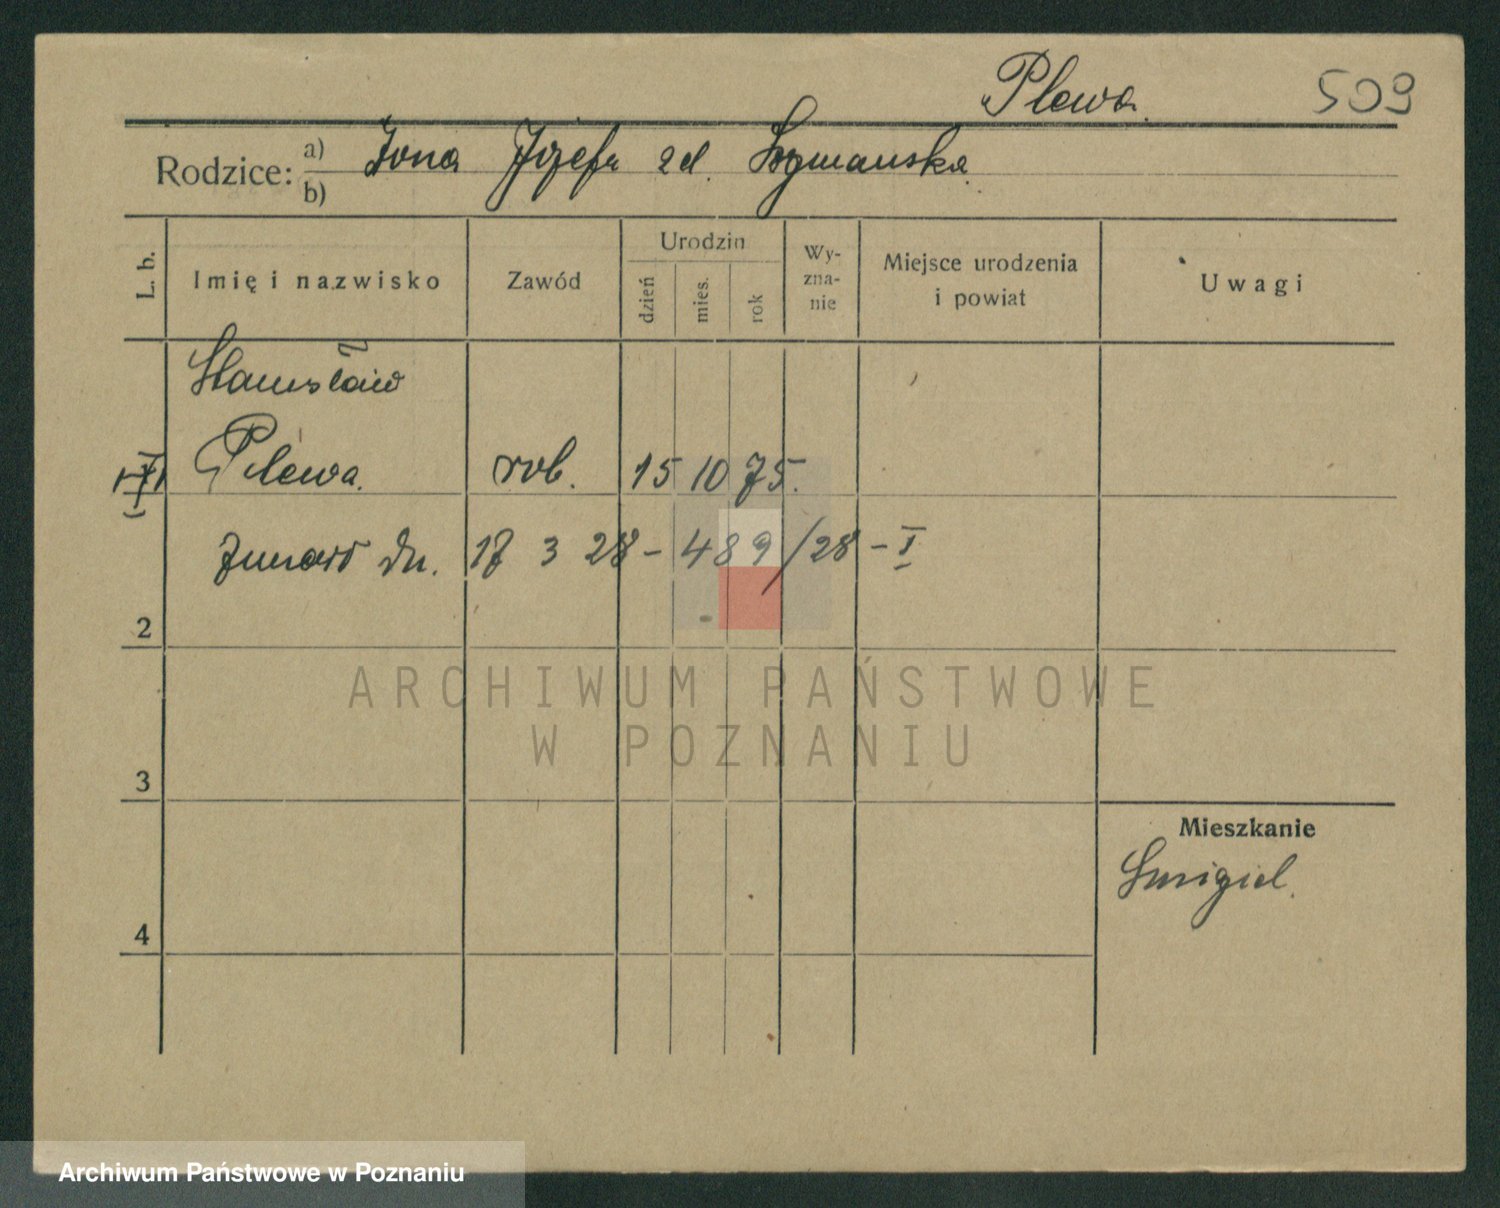 Plewa. 509
Rodzice: a) Żona Józefa zd. Szymańska.
b)
L. b. Imię i nazwisko Zawód Urodzin dzień mies. rok Wyzna-nie Miejsce urodzenia i powiat Uwagi
Stanisław
Plewa. rob. 15 10 75.
Zmarł dn. 17 3 28 - 489/28 - I
2
ARCHIWUM PAŃSTWOWE
W POZNANIU
3
Mieszkanie
Śmigiel.
4
Archiwum Państwowe w Poznaniu